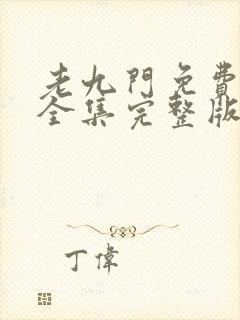 老九門免費
全集完整版
丁偉